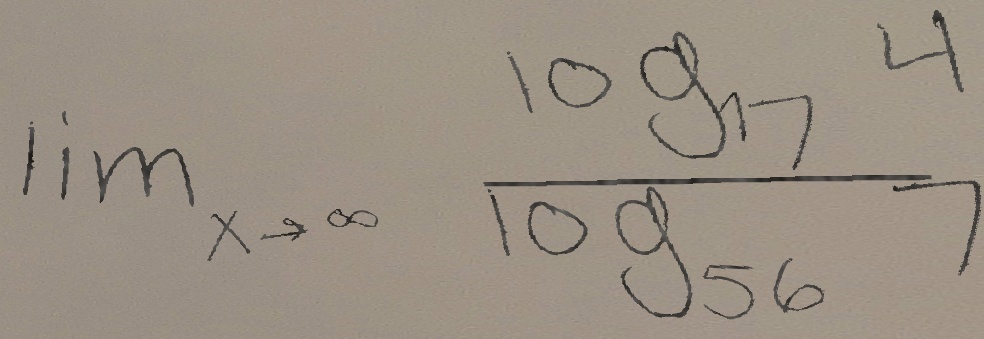 lim x→∞ log₁₇ 4 / log₅₆ 7